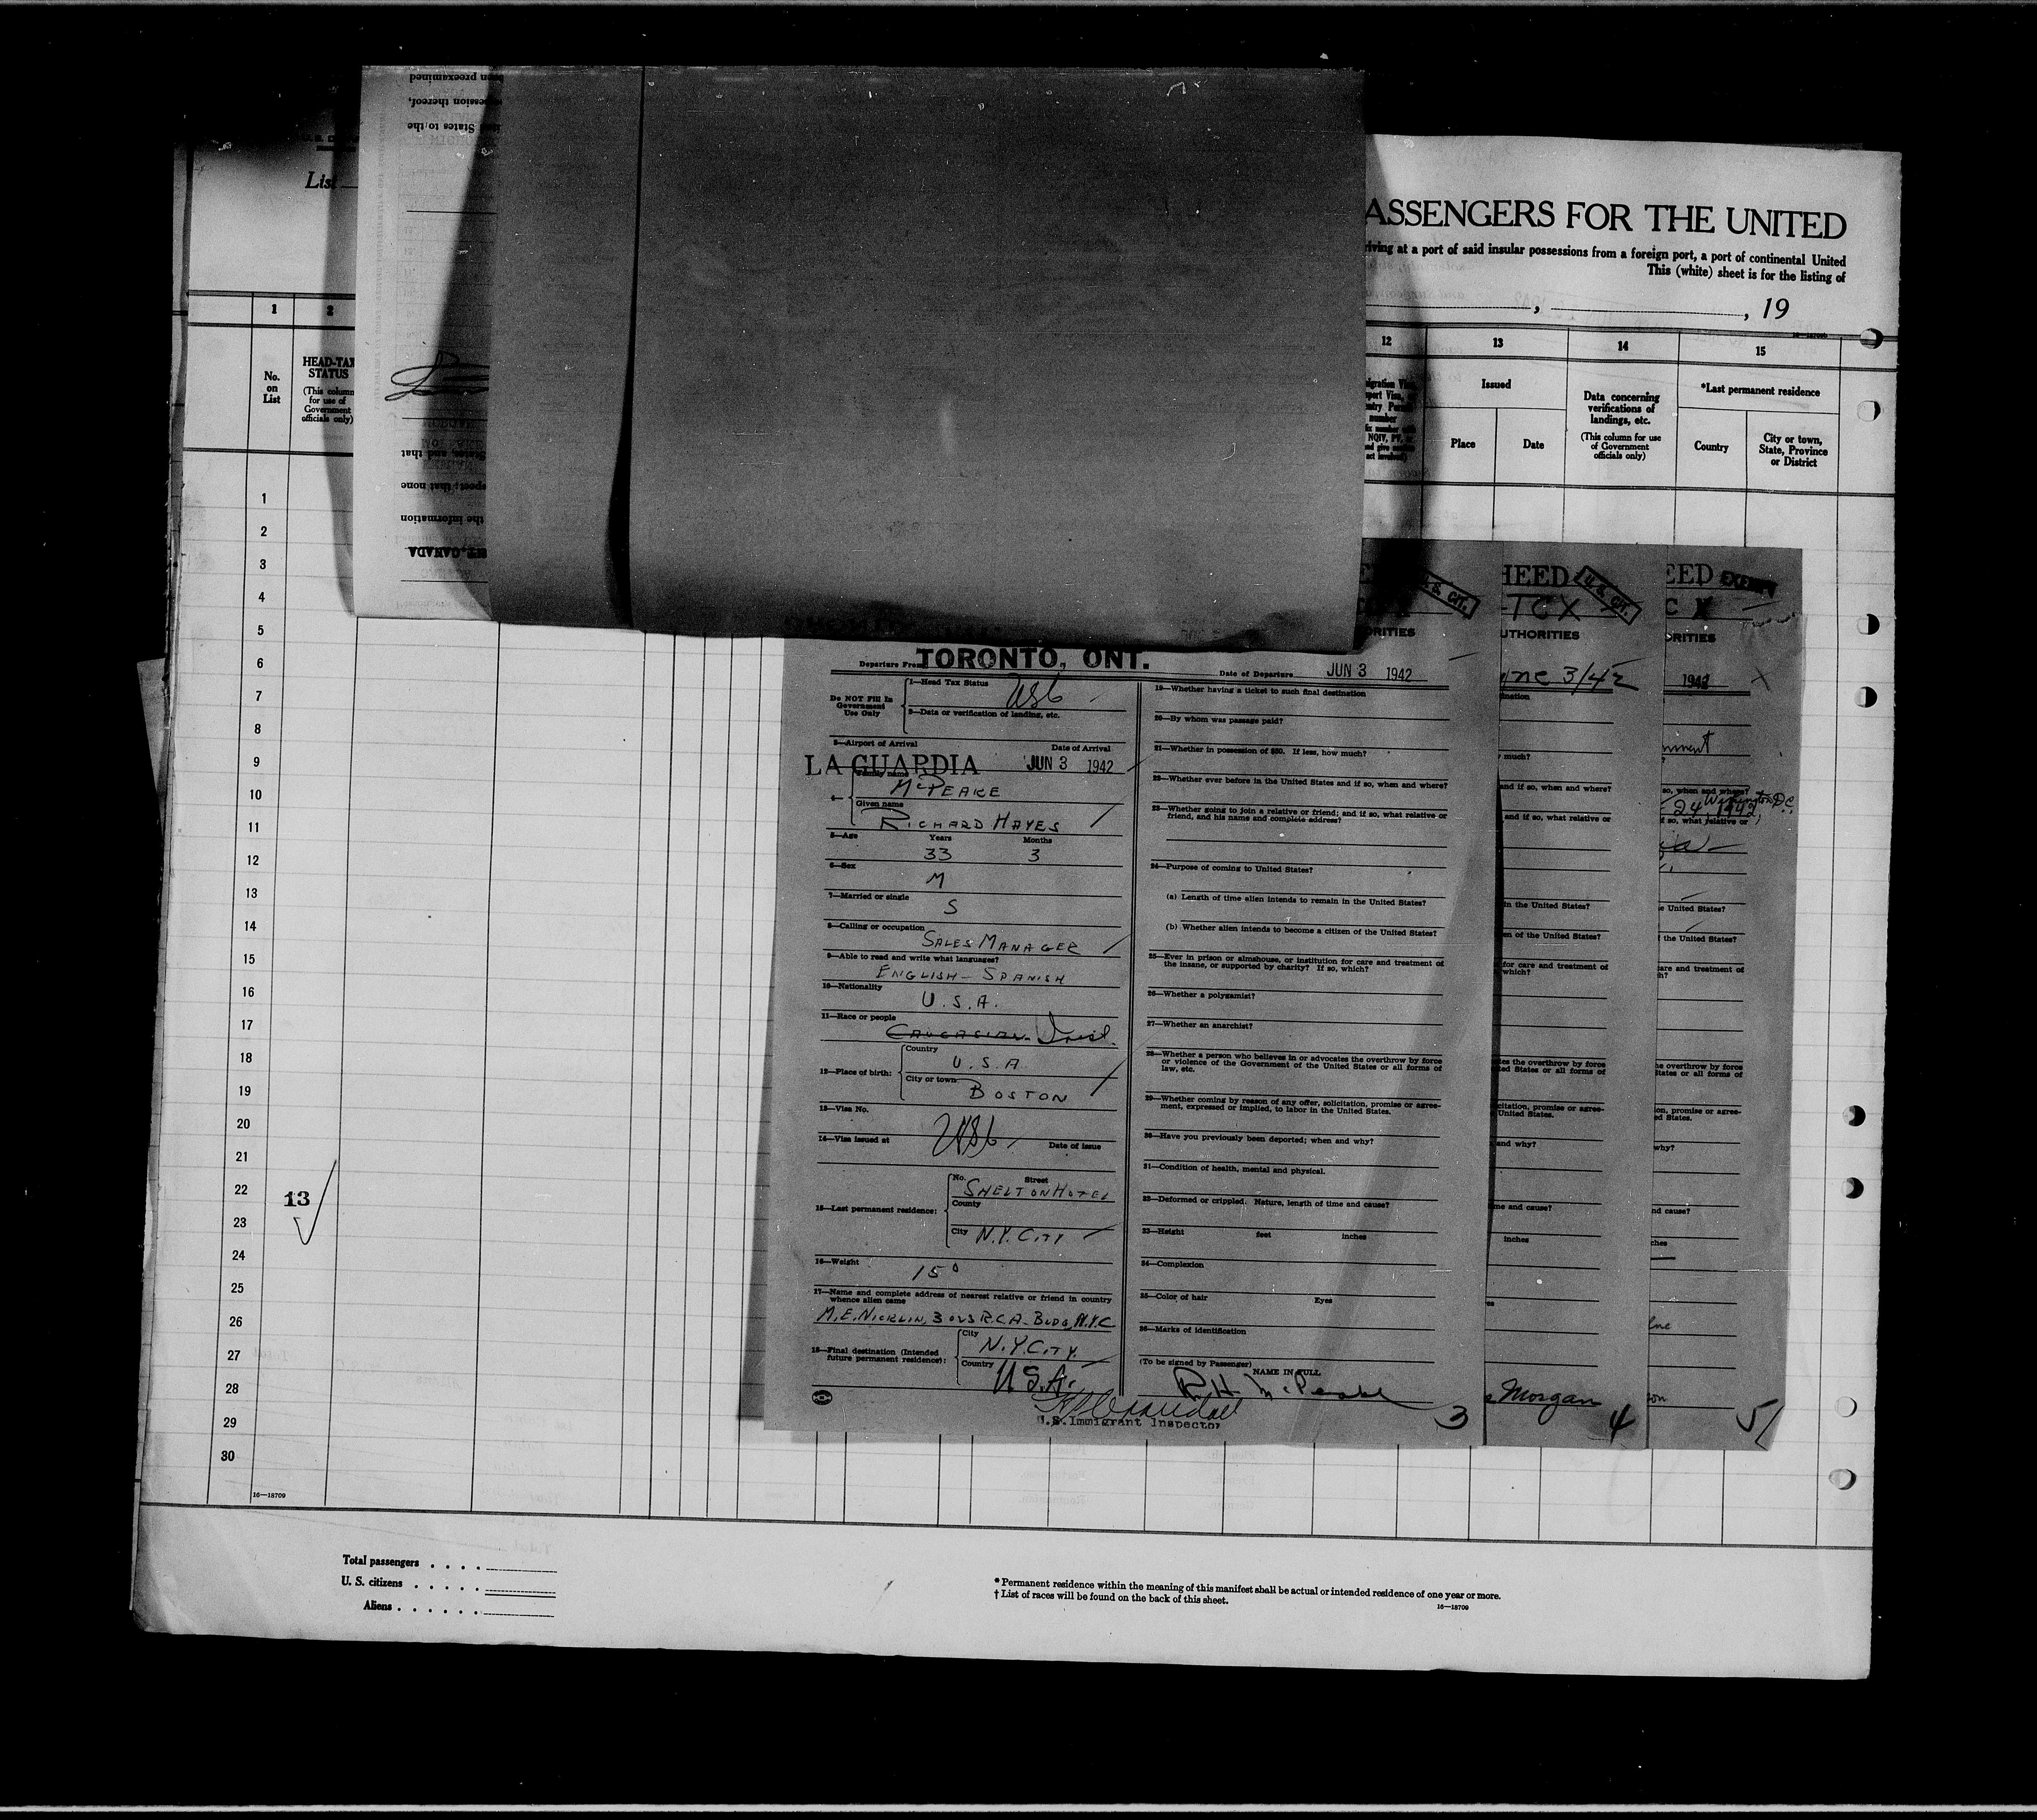 List
ASSENGERS FOR THE UNITED
riving at a port of said insular possessions from a foreign port, a port of continental United
This (white) sheet is for the listing of
, , 19
1 2
No. on List
HEAD-TAX STATUS
(This column for use of Government officials only)
12 13 14 15
Issued
Place Date
Data concerning verifications of landings, etc.
(This column for use of Government officials only)
*Last permanent residence
Country
City or town, State, Province or District
been preexamined
ession thereof,
ted States to the
States, and that
pect; that none
the information
NT., CANADA
1
2
3
4
5
6
7
8
9
10
11
12
13
14
15
16
17
18
19
20
21
22
13
23
24
25
26
27
28
29
30
16—18709
Departure From TORONTO, ONT.
Date of Departure JUN 3 1942
Do NOT Fill In Government Use Only
1—Head Tax Status USC
2—Data or verification of landing, etc.
3—Airport of Arrival Date of Arrival
LA GUARDIA JUN 3 1942
4— Family name
McPEAKE
Given name
RICHARD HAYES
5—Age Years Months
33 3
6—Sex
M
7—Married or single
S
8—Calling or occupation
SALES MANAGER
9—Able to read and write what languages?
ENGLISH - SPANISH
10—Nationality
U.S.A.
11—Race or people
CAUCASIAN Irish.
12—Place of birth:
Country
U.S.A
City or town
BOSTON
13—Visa No.
14—Visa issued at USC Date of issue
15—Last permanent residence:
No. Street
SHELTON HOTEL
County
City N.Y. CITY
16—Weight
150
17—Name and complete address of nearest relative or friend in country whence alien came
M.E. NICKLIN, 3043 R.C.A. BLDG, N.Y.C
18—Final destination (Intended future permanent residence):
City
N.Y. CITY.
Country
U.S.A.
19—Whether having a ticket to such final destination
20—By whom was passage paid?
21—Whether in possession of $50. If less, how much?
22—Whether ever before in the United States and if so, when and where?
23—Whether going to join a relative or friend; and if so, what relative or
friend, and his name and complete address?
24—Purpose of coming to United States?
(a) Length of time alien intends to remain in the United States?
(b) Whether alien intends to become a citizen of the United States?
25—Ever in prison or almshouse, or institution for care and treatment of
the insane, or supported by charity? If so, which?
26—Whether a polygamist?
27—Whether an anarchist?
28—Whether a person who believes in or advocates the overthrow by force
or violence of the Government of the United States or all forms of
law, etc.
29—Whether coming by reason of any offer, solicitation, promise or agree-
ment, expressed or implied, to labor in the United States.
30—Have you previously been deported; when and why?
31—Condition of health, mental and physical.
32—Deformed or crippled. Nature, length of time and cause?
33—Height feet inches
34—Complexion
35—Color of hair Eyes
36—Marks of identification
(To be signed by Passenger)
NAME IN FULL
R.H. McPeake
U.S. Immigrant Inspector
3
U.S. CIT.
ORITIES
HEED U.S. CIT.
TCX
UTHORITIES
ne 3/42
ination
much?
and if so, when and where?
and if so, what relative or
in the United States?
en of the United States?
for care and treatment of
which?
tes the overthrow by force
ted States or all forms of
citation, promise or agree-
United States.
and why?
me and cause?
inches
es
Morgan
4
EED EXEMPT
C X
ORITIES
1942
nment
?
so, when and where?
24, 1942, Washington, D.C.
if so, what relative or
e United States?
f the United States?
care and treatment of
h?
he overthrow by force
States or all forms of
on, promise or agree-
ed States.
why?
nd cause?
ches
son
5
Total passengers . . . .
U. S. citizens . . . . .
Aliens . . . . . .
* Permanent residence within the meaning of this manifest shall be actual or intended residence of one year or more.
† List of races will be found on the back of this sheet.
16—18709